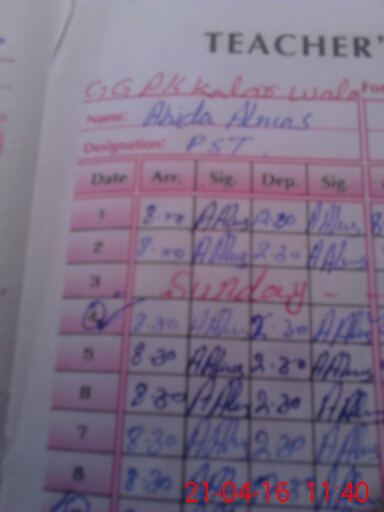 TEACHER'
GGPK kalar wala For
Name: Abida Almas
Designation: PST
Date Arr. Sig. Dep. Sig.
1 8.00 AAlmas 2.30 AAlmas 8
2 8.00 AAlmas 2.30 AAlmas
3 Sunday -
4 8.30 AAlmas 2.30 AAlmas
5 8.30 AAlmas 2.30 AAlmas
6 8.30 AAlmas 2.30 AAlmas
7 8.30 AAlmas 2.30 AAlmas
8 8.30
21-04-16 11:40